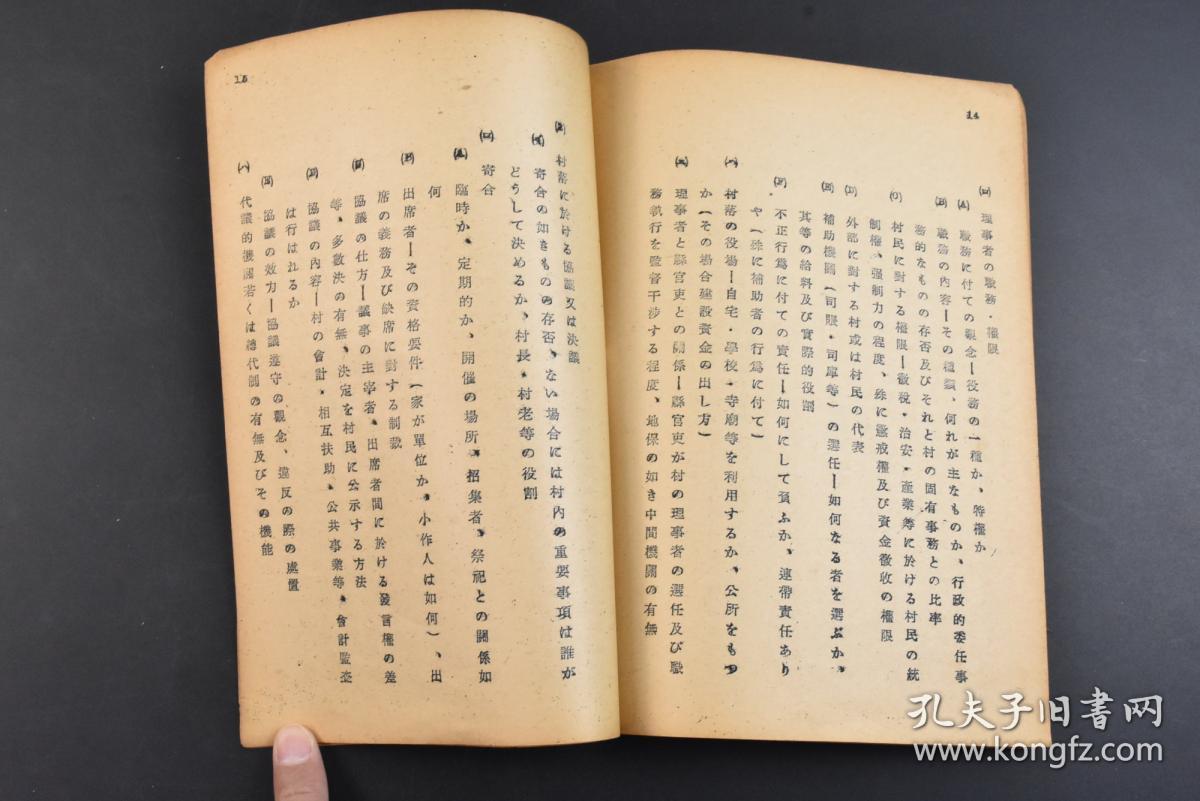 14
(ロ) 理事者の職務・權限
(A) 職務に付ての觀念—役務の一種か、特權か
(B) 職務の內容—その種類、何れが主なものか、行政的委任事
務的なものの存否及びそれと村の固有事務との比率
(C) 村民に對する權限—徵稅・治安・產業等に於ける村民の統
制權、强制力の程度、殊に懲戒權及び資金徵收の權限
(D) 外部に對する村或は村民の代表
補助機關(司賬・司庫等)の選任—如何なる者を選ぶか、
其等の給料及び實際的役割
不正行爲に付ての責任—如何にして負ふか、連帶責任あり
や(殊に補助者の行爲に付て)
(ハ) 村落の役場—自宅・學校・寺廟等を利用するか、公所をもつ
か(その場合建設資金の出し方)
(ニ) 理事者と縣官吏との關係—縣官吏が村の理事者の選任及び職
務執行を監督干涉する程度、地保の如き中間機關の有無
15
村落に於ける協議又は決議
(イ) 寄合の如きものの存否、ない場合には村內の重要事項は誰が
どうして決めるか、村長・村老等の役割
(ロ) 寄合
(A) 臨時か、定期的か、開催の場所、招集者、祭祀との關係如
何
(B) 出席者—その資格要件(家が單位か、小作人は如何)、出
席の義務及び缺席に對する制裁
協議の仕方—議事の主宰者、出席者間に於ける發言權の差
等、多數決の有無、決定を村民に公示する方法
(D) 協議の內容—村の會計・相互扶助、公共事業等、會計監査
は行はれるか
協議の效力—協議遵守の觀念、違反の際の處置
(ハ) 代議的機關若くは總代制の有無及びその機能
孔夫子旧书网
www.kongfz.com